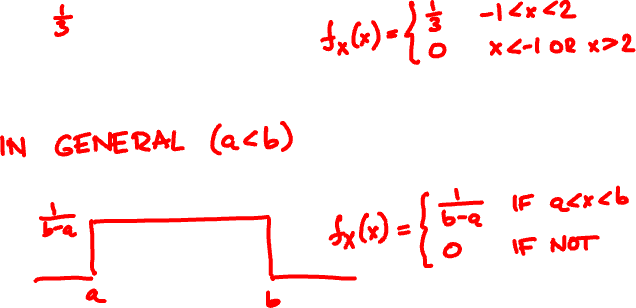 1/3
f_X(x) = { 1/3 -1<x<2
0 x<-1 OR x>2
IN GENERAL (a<b)
1/(b-a)
a b
f_X(x) = { 1/(b-a) IF a<x<b
0 IF NOT